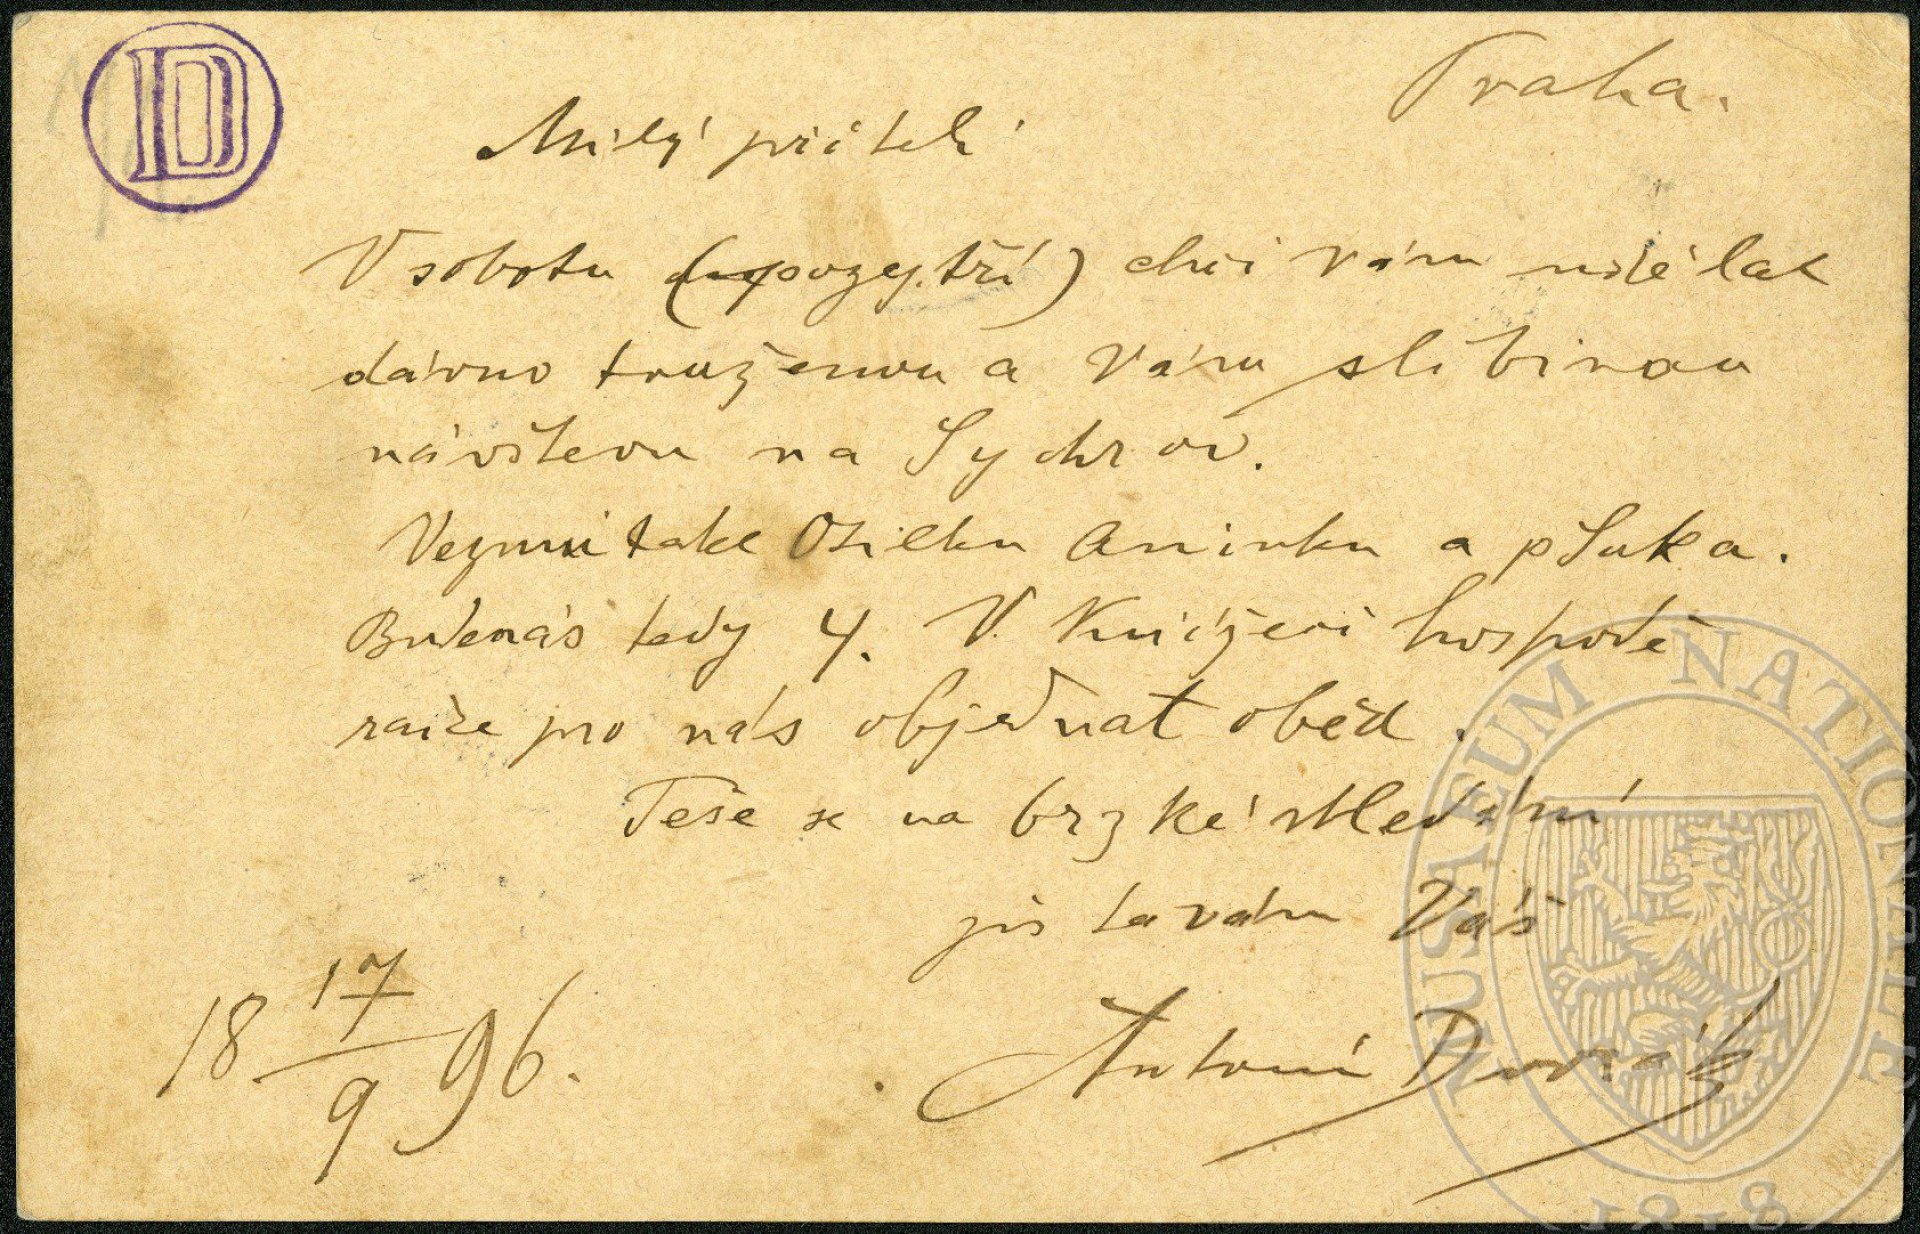 D
Praha.
Milý příteli
V sobotu (pozejtří) chci Vám udělat
dávno touženou a Vám slíbenou
návštevu na Sychrov.
Vezmu také Otilku Aninku a p Suka.
Budenás tedy 4. V Knížecí hospodě
račte pro nás objednat oběd.
Teše se na brzké shledání
jis tavám Váš
18 17/9 96.
Antonín Dvořák
MUSAEUM NATIONALE
1818